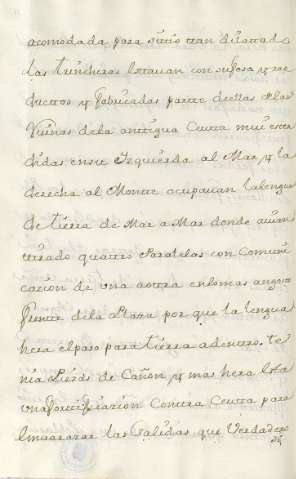 acomodada para sitio tan dilatado
las trincheras estauan con su fosa y re
ductos y fabricadas parte dellas de las
Ruinas dela antigua Ceuta mui esten
didas en su Izquierda al Mar y la
derecha al Monte ocupauan la lengua
de tierra de Mar a Mar donde auian
tirado quatro Paralelas con Comuni
cacion de una a otra en lo mas angosto
frente dela Plaza por que la lengua
hera el paso para tierra adentro. te
nia Piezas de Cañon y mas hera esta
una fortificazion Contra Ceuta para
embarazar las Salidas que Verdadera